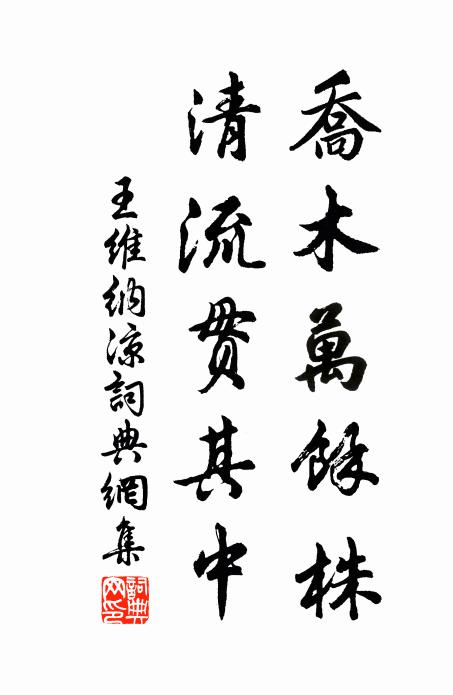 喬木萬餘株
清流貫其中
王維納涼詞典網集
詞典網印